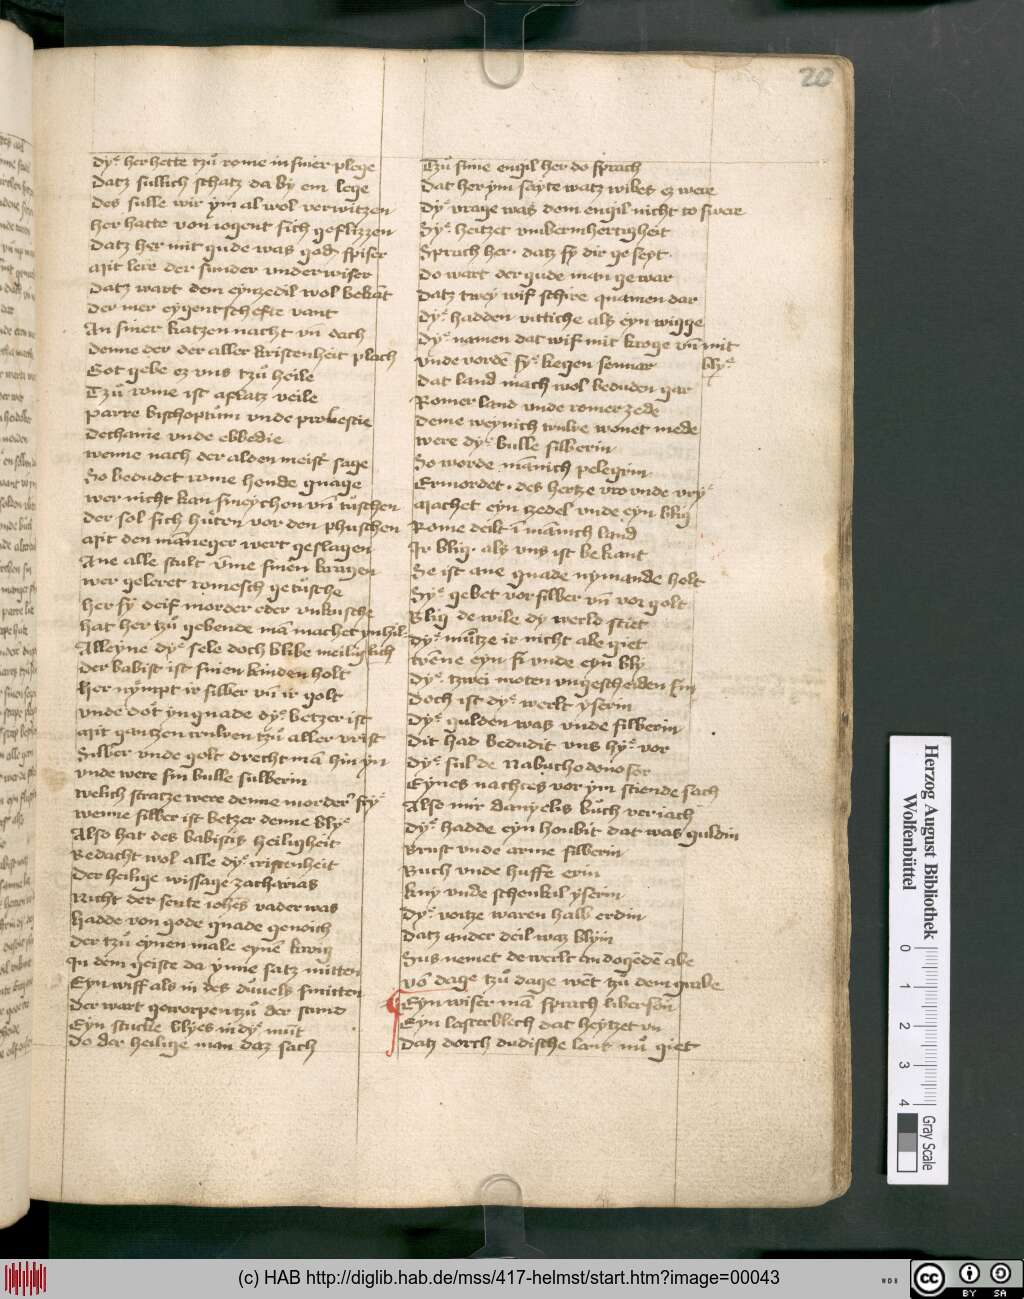 20
dye her hette tzů rome in siner plege
Datz sullich schatz da by em lege
Des sulle wir ym al wol verwitzen
her hatte von iogent sich geflizzen
Datz her mit gude was godis spiser
Mit lere der sunder underwiser
Datz wart dem eynzedil wol bekāt
Der mer eygentschefte vant
An siner katzen nacht vn̄ dach
Denne der der aller kristenheit plach
Got gebe ez uns tzů heile
Tzů rome ist aplatz veile
parre bischoptům unde probestie
Dechanie unde ebbedie
wenne nach der alden meist' sage
So bedudet rome hende gnage
wer nicht kan smeychen vn̄ tůschen
der sol sich hůten vor den phuschen
Mit den māneger wert geslagen
Ane alle schult ūme sinen kragen
wer geleret romesch getůsche
her sy deif morder eder unkusche
hat her tzů gebende mā machet yn hil-
Alleyne dye sele doch blibe meilich
der babist ist sinen kinden holt
her nympt ir silber vn̄ ir golt
unde dot yn gnade dye betzer ist
Mit gantzen truwen tzů aller vrist
Silber unde golt drecht mā hin yn
unde were sin bulle sulberin
welich stratze were denne morder' frye
wenne silber ist betzer denne blye
Also hat des babistes heiligheit
Bedacht wol alle dye cristenheit
Der heilige wissage zacharias
Nicht der sente iohēs vader was
hadde von gode gnade genoich
der tzů eynen male eynē kroig
In dem geiste da ynne satz mitten
Eyn wiff als in des důvels smitten
der wart geworpen tzů der stund
Eyn stucke blyes in dye mūt
Do der heilige man daz sach
Tzů sime engil her do sprach
dat her ym sayte watz wibes ez were
Dye vrage was dem engil nicht to swar
Sye heitzet unbermhertigheit
Sprach her· datz sy dir geseyt·
do wart der gude man gewar
Datz twey wif schire quamen dar
Dye hadden vittiche als eyn wigge
Dye namen dat wif mit kroge vn̄ mit
blye
unde vordē sye kegen sennar
Dat land mach wol beduden gar
Romer land unde romer zede
Deme weynich truwe wonet mede
were dye bulle silberin
So worde mānich pelegrin
Ermordet· des hertze vro unde vrye
Machet eyn zedel unde eyn blig
Rome deilt ī mānich land
Ir blig· als uns ist bekant
Se ist ane gnade nymande holt
Sye gebet vor silber vn̄ vor golt
Blig de wile dy werld stiet
dye mūtze ir nicht abe giet
wēne eyn fi unde eyn bly
Dye tzwei moten ungescheiden sin
Doch ist dye werlt yserin
Dye gulden was unde silberin
Dit had bedudit uns hye vor
Dye sul de Nabuchodonosor
Eynes nachtes vor ym stende sach
Also mir danyelis bůch veriach
dye hadde eyn houbit dat was guldin
Brust unde arme silberin
Buch unde huffe erin
kny unde schenkil yserin
dye voitze waren halb erdin
Datz ander deil waz blyin
Sus nemet de werlt an dogēdē abe
vō dage tzů dage wēt tzu dem grabe
Eyn wiser mā sprach libersūn
Eyn lasterblech dat heytzet un
Datz dorch dudische lant nů giet
Herzog August Bibliothek
Wolfenbüttel
0 1 2 3 4
Gray Scale
(c) HAB http://diglib.hab.de/mss/417-helmst/start.htm?image=00043
WDB
cc BY SA